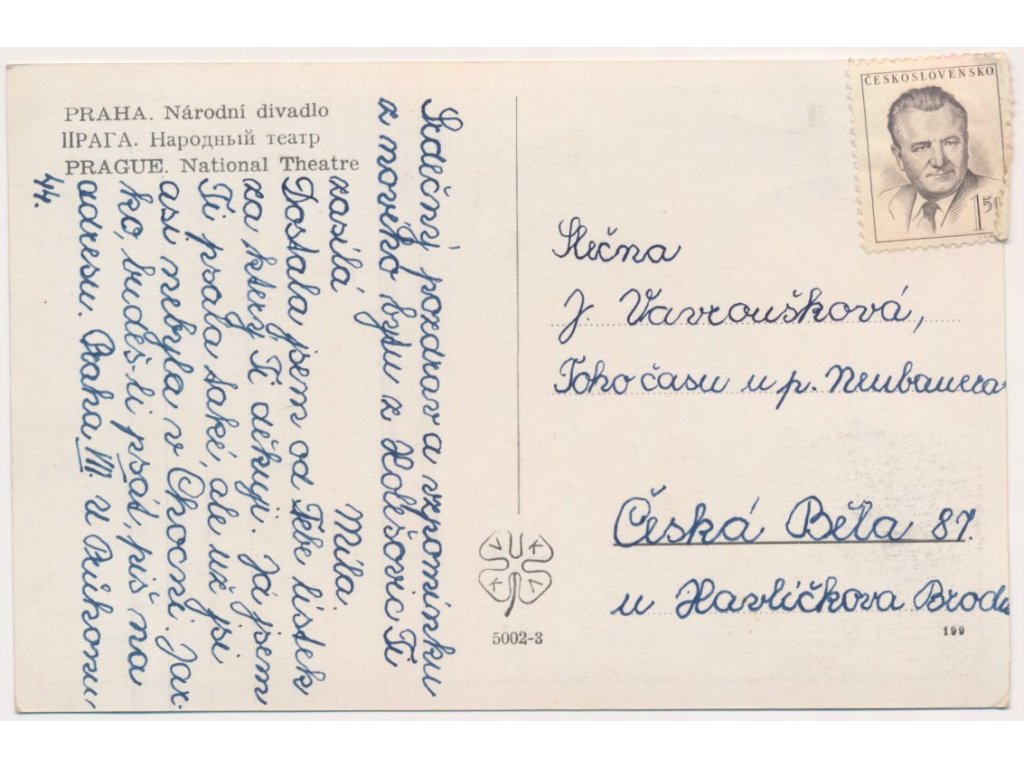 PRAHA. Národní divadlo
ПРАГА. Народный театр
PRAGUE. National Theatre
Srdečný pozdrav a vzpomínku
z nového bytu z Holešovic Ti
zasílá Míla.
Dostala jsem od Tebe lístek
za který Ti děkuji. Já jsem
Ti psala také, ale už jsi
asi nebyla v Chocni. Jar
ko, budeš-li psát, piš na
adresu. Praha VII. U Průhonu,
44.
ČESKOSLOVENSKO
1,50
Slečna
J. Vavroušková,
Toho času u p. Neubauera
Česká Běla 87.
u Havlíčkova Brodu
5002-3
199